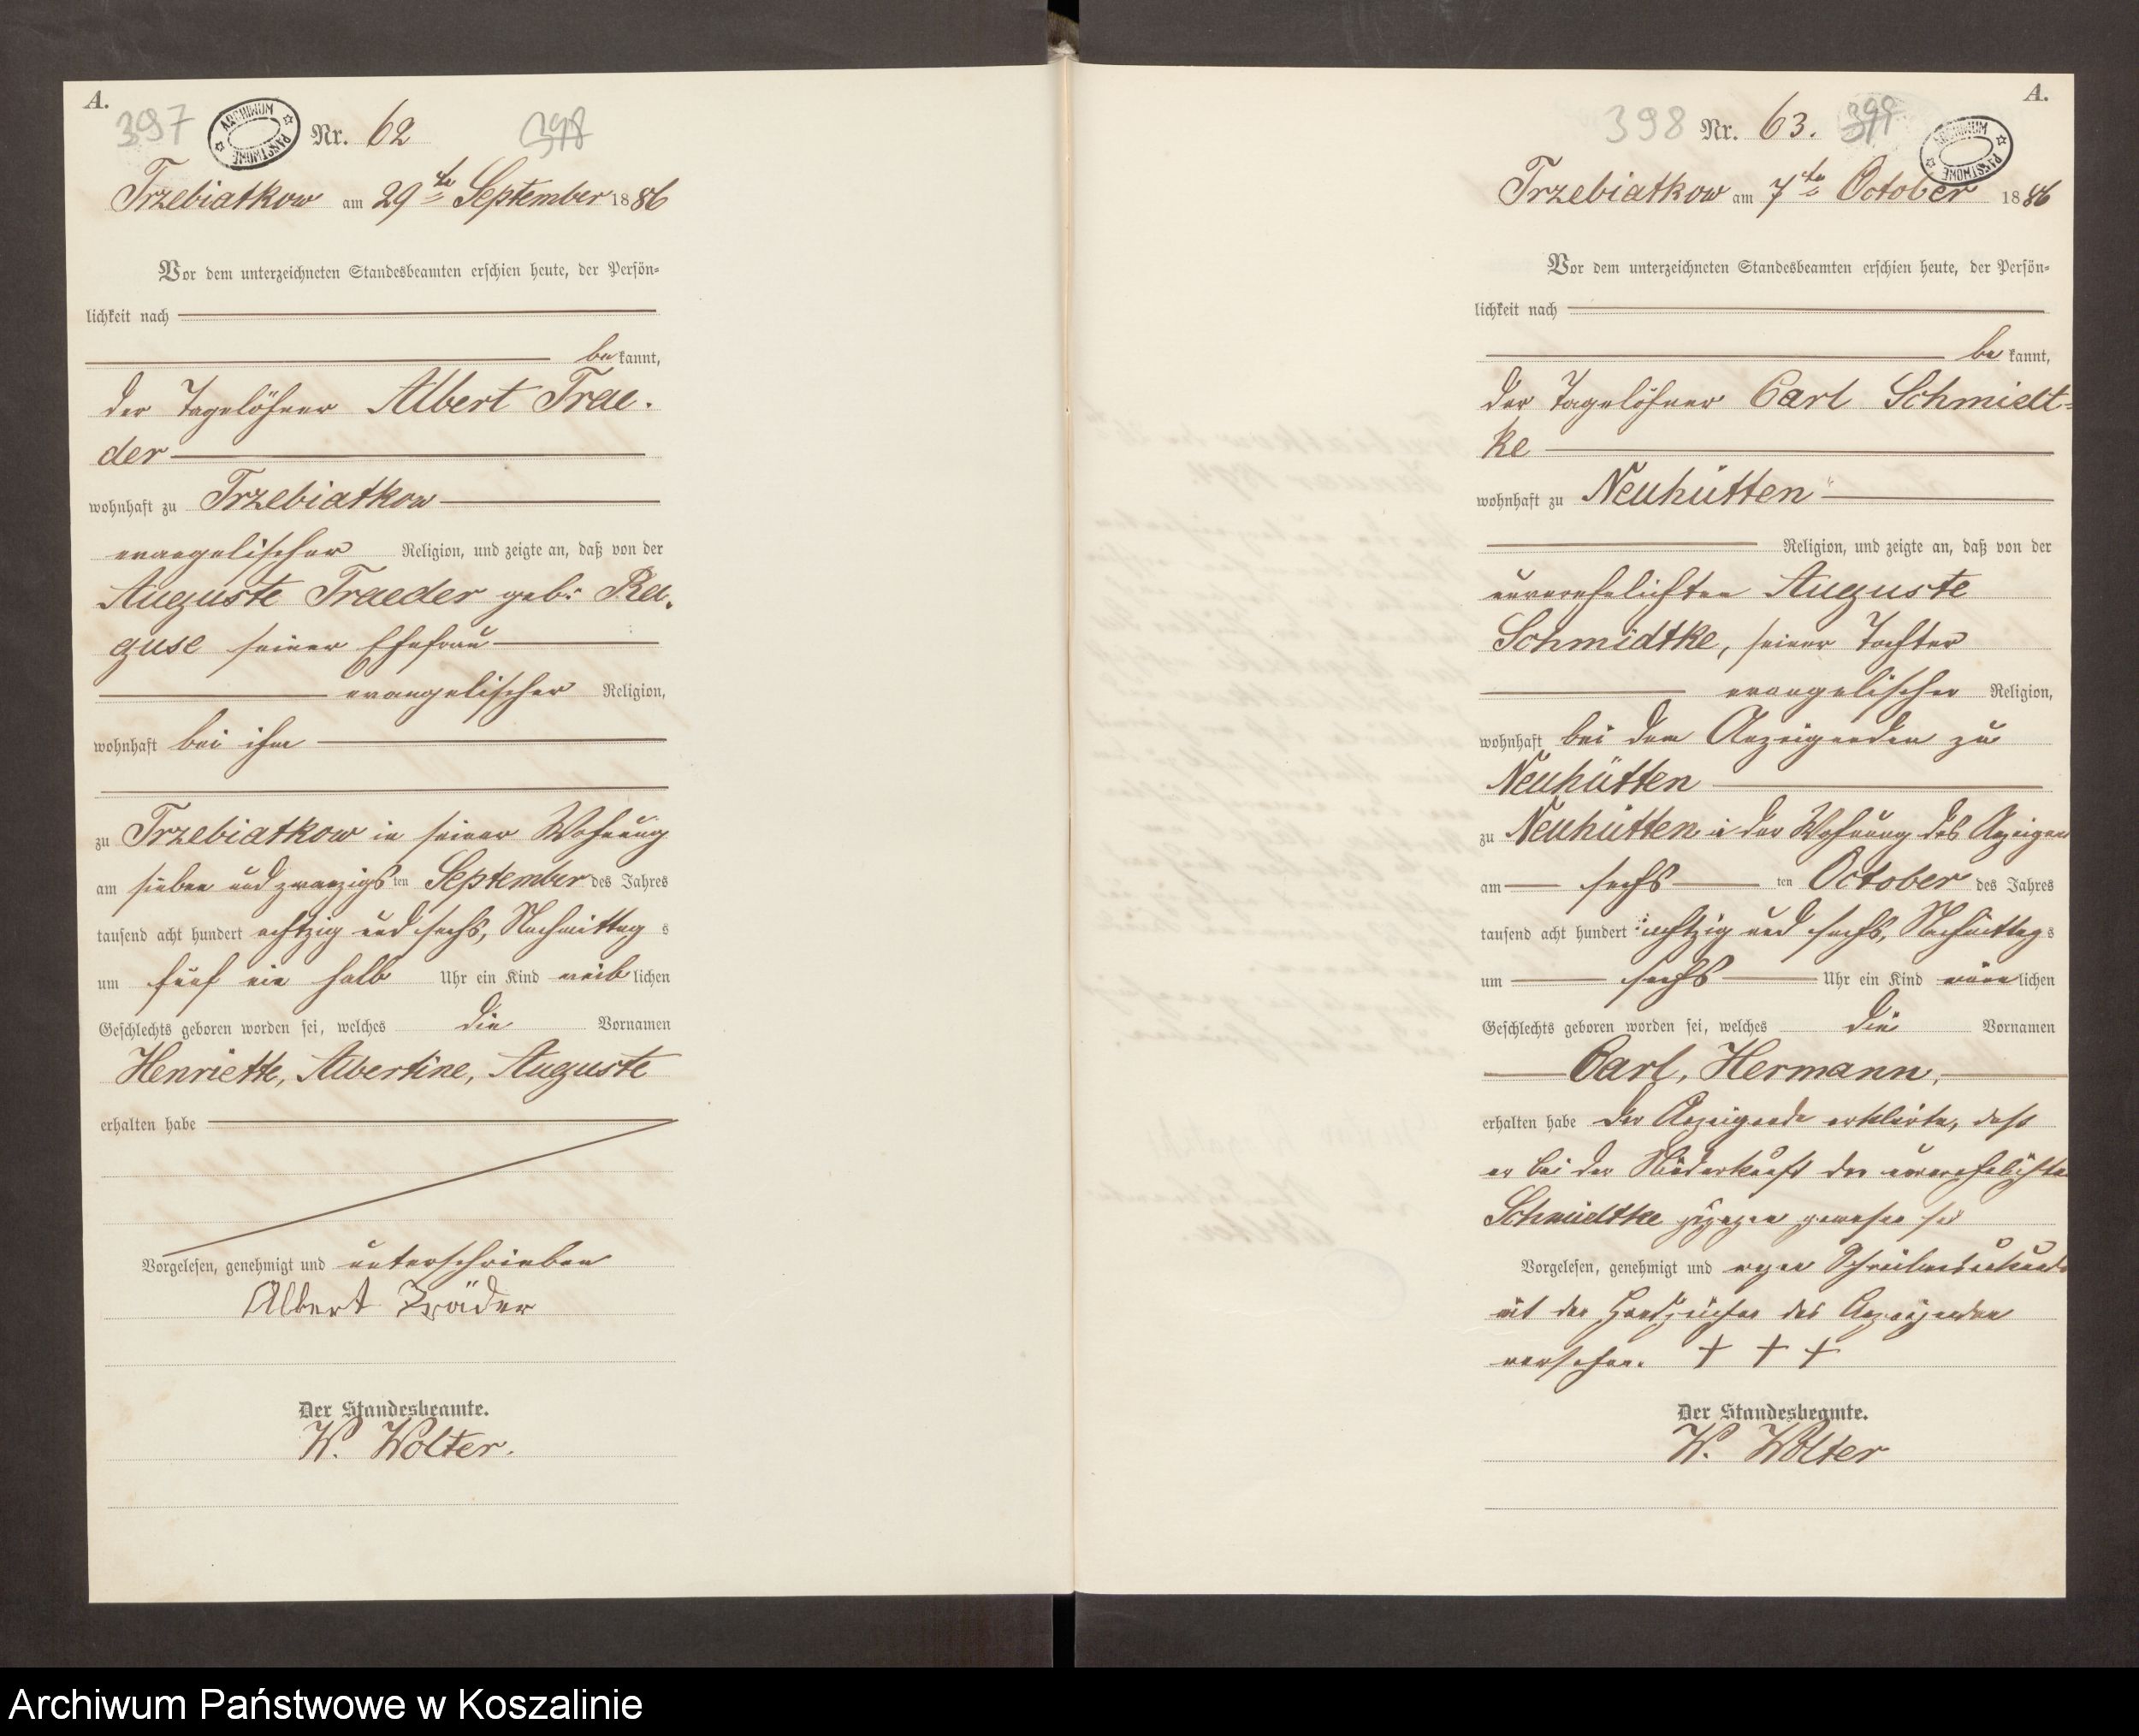 A.
397
ARCHIWUM PAŃSTWOWE
Nr. 62
398
Trzebiatkow am 29te September 1886
Vor dem unterzeichneten Standesbeamten erschien heute, der Persön-
lichkeit nach
be kannt,
der Tagelöhner Albert Trae-
der
wohnhaft zu Trzebiatkow
evangelischer Religion, und zeigte an, daß von der
Auguste Traeder geb:
guse seiner Ehefrau
evangelischer Religion,
wohnhaft bei ihm
zu Trzebiatkow in seiner Wohnung
am sieben und zwanzigs ten September des Jahres
tausend acht hundert achtzig und sechs, Nachmittag s
um fünf ein halb Uhr ein Kind weib lichen
Geschlechts geboren worden sei, welches die Vornamen
Henriette, Albertine, Auguste
erhalten habe
Vorgelesen, genehmigt und unterschrieben
Albert Träder
Der Standesbeamte.
W. Wolter.
A.
398
Nr. 63.
399
ARCHIWUM PAŃSTWOWE
Trzebiatkow am 7te October 1886
Vor dem unterzeichneten Standesbeamten erschien heute, der Persön-
lichkeit nach
be kannt,
der Tagelöhner Carl Schmidt-
ke
wohnhaft zu Neuhütten
Religion, und zeigte an, daß von der
unverehelichten Auguste
Schmidtke, seiner Tochter
evangelischer Religion,
wohnhaft bei dem Anzeigenden zu
Neuhütten
zu Neuhütten in der Wohnung des
am sechs ten October des Jahres
tausend acht hundert achtzig und sechs, Nachmittag s
um sechs Uhr ein Kind männ lichen
Geschlechts geboren worden sei, welches die Vornamen
Carl, Hermann,
erhalten habe der Anzeigende erklärte, dass
er bei der Niederkunft der unverehelichten
Schmidtke zugegen gewesen sei
Vorgelesen, genehmigt und wegen
mit dem Handzeichen des Anzeigenden
versehen. + + +
Der Standesbeamte.
W. Wolter
Archiwum Państwowe w Koszalinie